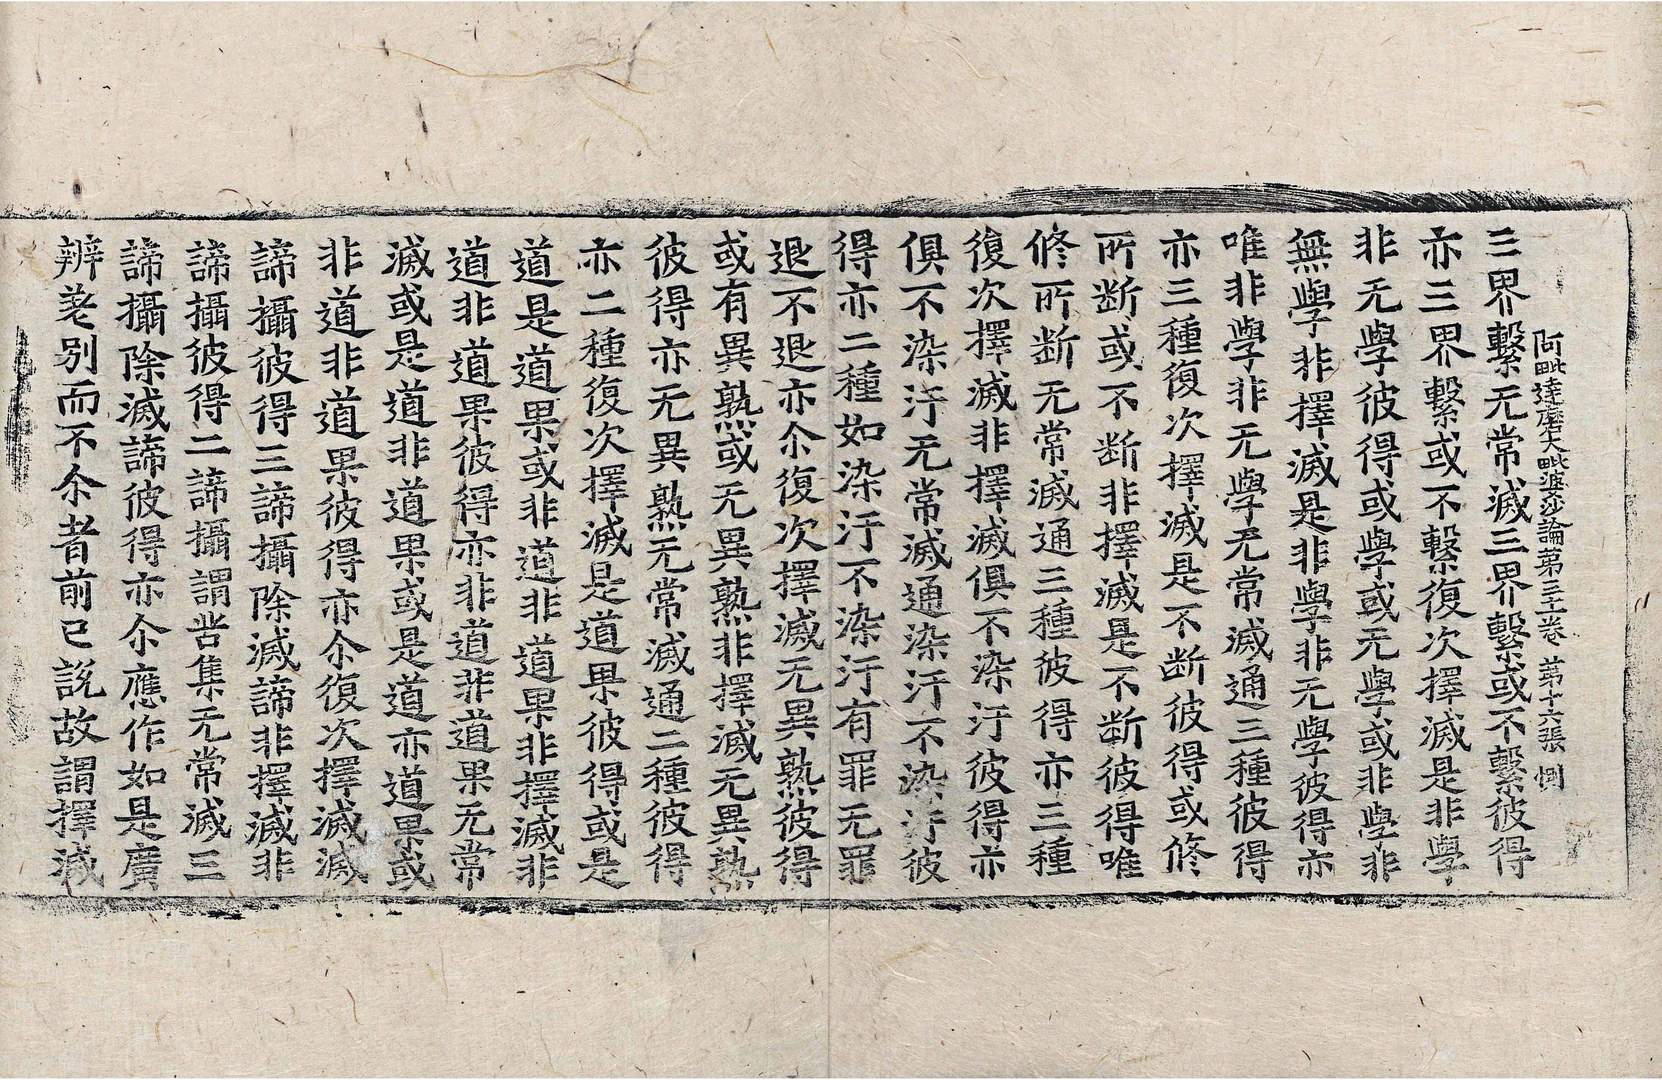 阿毗達磨大毗婆沙論第三十一卷 第十六張 惻
三界繫无常滅三界繫或不繫彼得
亦三界繫或不繫復次擇滅是非學
非无學彼得或學或无學或非學非
無學非擇滅是非學非无學彼得亦
唯非學非无學无常滅通三種彼得
亦三種復次擇滅是不断彼得或修
所断或不断非擇滅是不断彼得唯
修所断无常滅通三種彼得亦三種
復次擇滅非擇滅俱不染汙彼得亦
俱不染汙无常滅通染汙不染汙彼
得亦二種如染汙不染汙有罪无罪
退不退亦尒復次擇滅无異熟彼得
或有異熟或无異熟非擇滅无異熟
彼得亦无異熟无常滅通二種彼得
亦二種復次擇滅是道果彼得或是
道是道果或非道非道果非擇滅非
道非道果彼得亦非道非道果无常
滅或是道非道果或是道亦道果或
非道非道果彼得亦尒復次擇滅滅
諦攝彼得三諦攝除滅諦非擇滅非
諦攝彼得二諦攝謂苦集无常滅三
諦攝除滅諦彼得亦尒應作如是廣
辨差別而不尒者前已說故謂擇滅